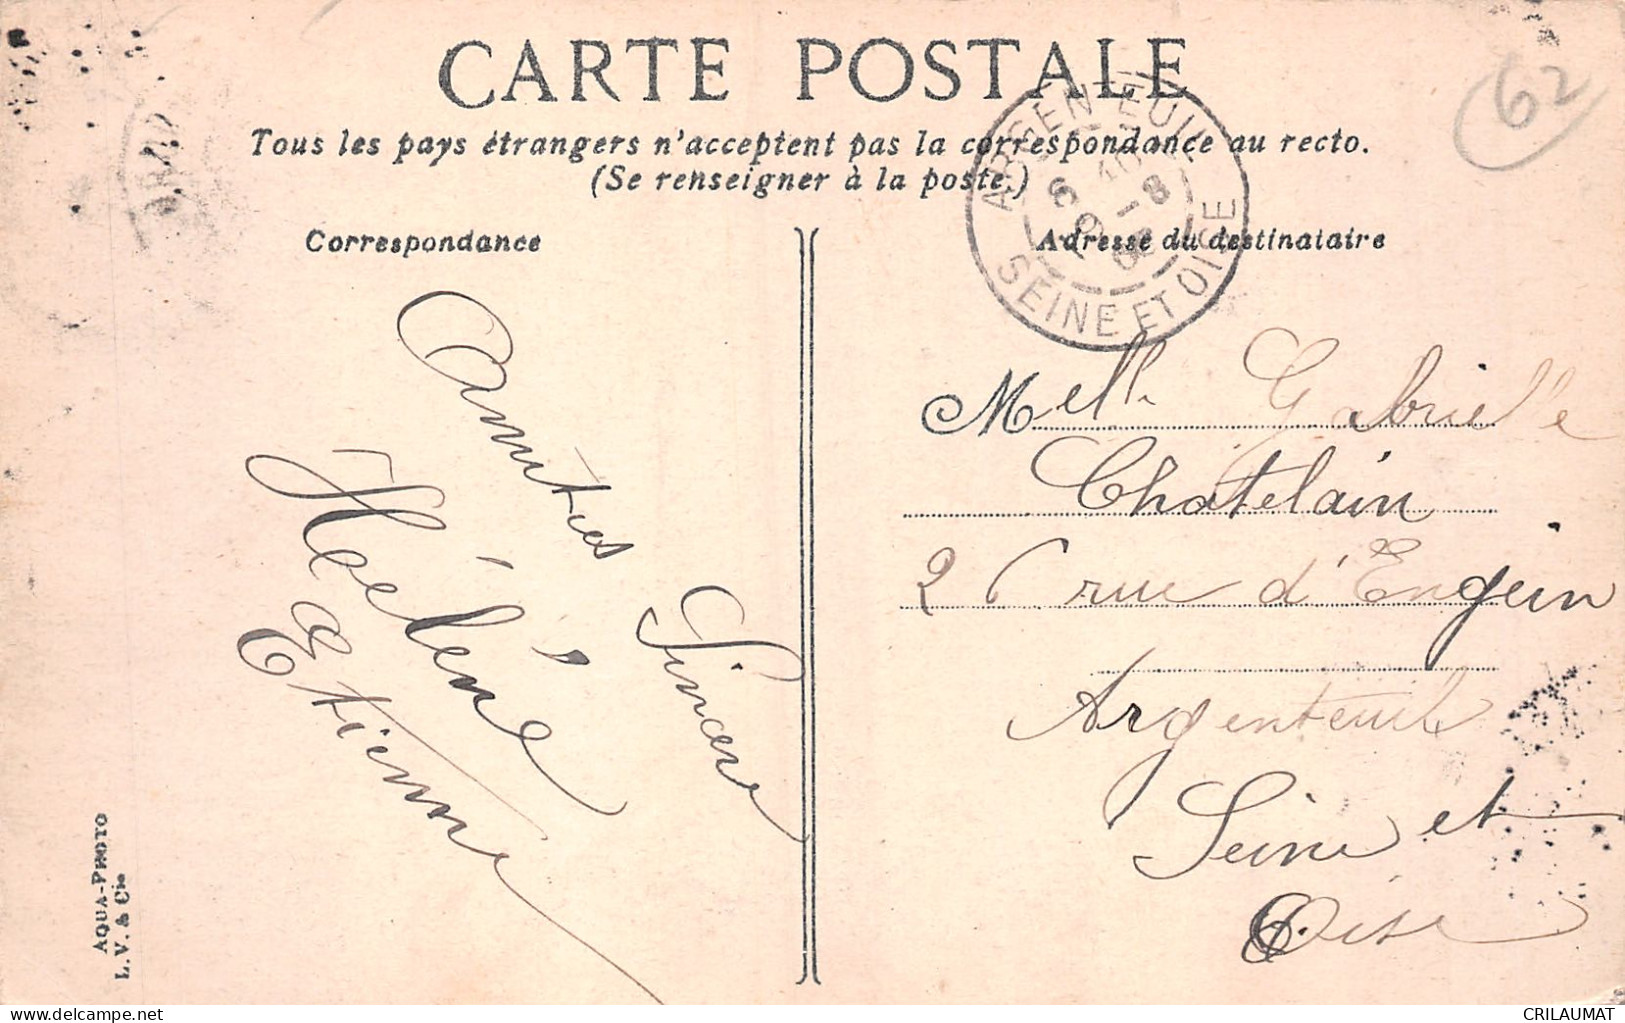 CARTE POSTALE
Tous les pays étrangers n'acceptent pas la correspondance au recto.
(Se renseigner à la poste.)
Correspondance
Adresse du destinataire
ARGENTEUIL
SEINE ET OISE
62
Amitiés Sincère
Hélène
Etienne
Melle Gabrielle
Chatelain
26 rue d'Engein
Argenteuil
Seine et
Oise
AQUA-PHOTO
L. V. & Cie
CRILAUMAT